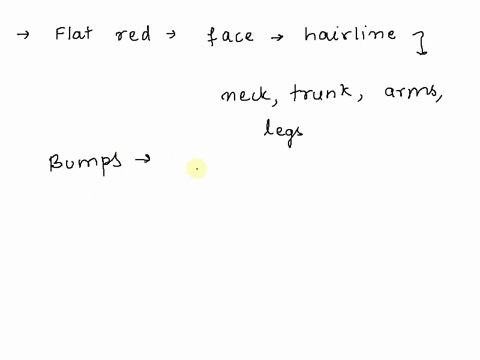 → Flat red → face → hairline ]
neck, trunk, arms,
legs
Bumps →